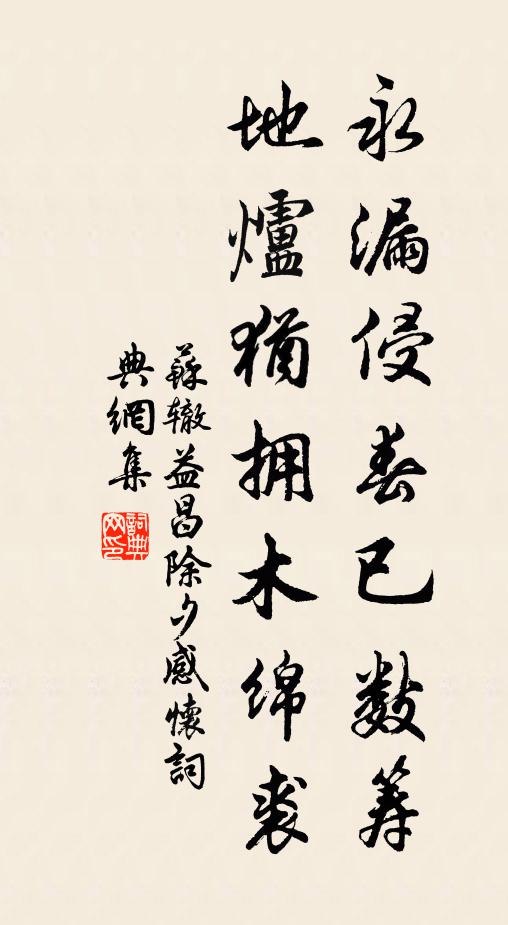 永漏侵春已数筹
地爐猶拥木绵裘
蘇辙益昌除夕感懷詞
典網集
詞典
网印